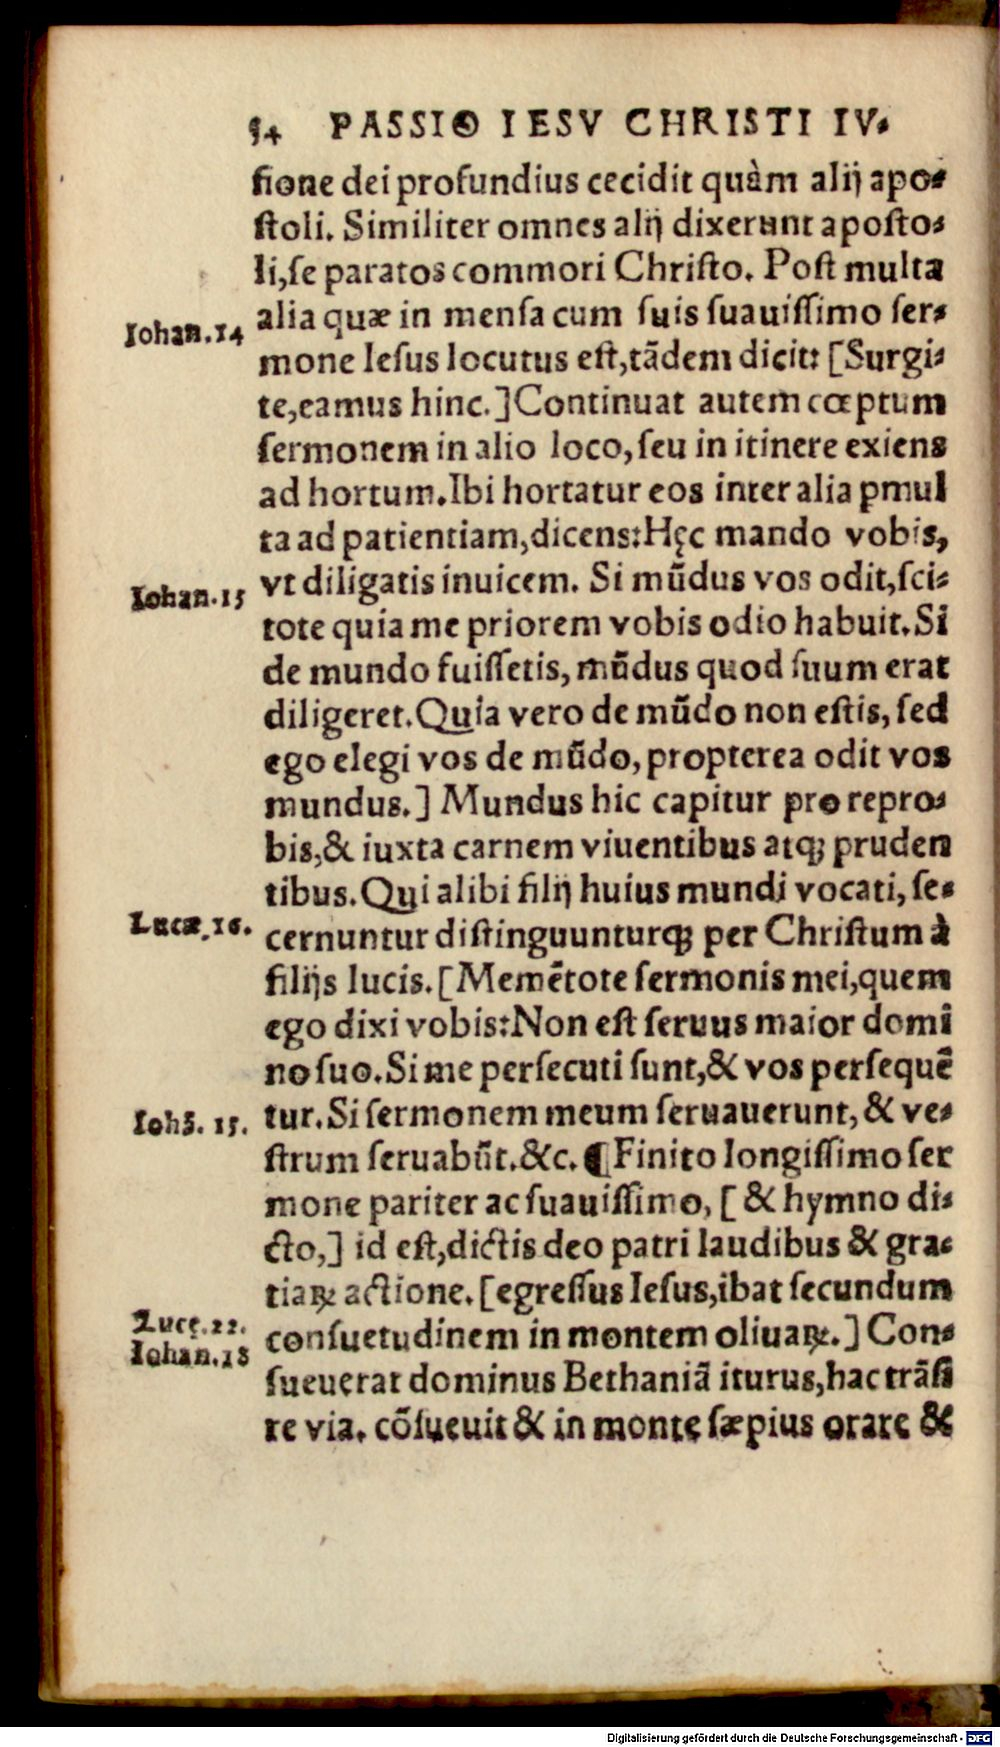 54 PASSIO IESV CHRISTI IV.
ſione dei profundius cecidit quàm alij apo-
ſtoli. Similiter omnes alij dixerunt apoſto-
li, ſe paratos commori Chriſto. Poſt multa
Iohan.14 alia quæ in menſa cum ſuis ſuauiſſimo ſer-
mone Ieſus locutus eſt, tādem dicit: [Surgi-
te, eamus hinc.] Continuat autem cœptum
ſermonem in alio loco, ſeu in itinere exiens
ad hortum. Ibi hortatur eos inter alia pmul
ta ad patientiam, dicens: Hęc mando vobis,
Iohan.15 vt diligatis inuicem. Si mūdus vos odit, ſci-
tote quia me priorem vobis odio habuit. Si
de mundo fuiſſetis, mūdus quod ſuum erat
diligeret. Quia vero de mūdo non eſtis, ſed
ego elegi vos de mūdo, propterea odit vos
mundus.] Mundus hic capitur pro repro-
bis, & iuxta carnem viuentibus atq; pruden
tibus. Qui alibi filij huius mundi vocati, ſe-
Lucæ.16. cernuntur diſtinguunturq; per Chriſtum à
filijs lucis. [Memētote ſermonis mei, quem
ego dixi vobis: Non eſt ſeruus maior domi
no ſuo. Si me perſecuti ſunt, & vos perſequē
Iohā. 15. tur. Si ſermonem meum ſeruauerunt, & ve-
ſtrum ſeruabūt. &c. ¶ Finito longiſſimo ſer
mone pariter ac ſuauiſſimo, [& hymno di-
cto,] id eſt, dictis deo patri laudibus & gra-
tiaꝝ actione. [egreſſus Ieſus, ibat ſecundum
Lucę.22. conſuetudinem in montem oliuaꝝ.] Con-
Iohan.18 ſueuerat dominus Bethaniā iturus, hac trāſi
re via. cōſueuit & in monte ſæpius orare &
Digitalisierung gefördert durch die Deutsche Forschungsgemeinschaft - DFG